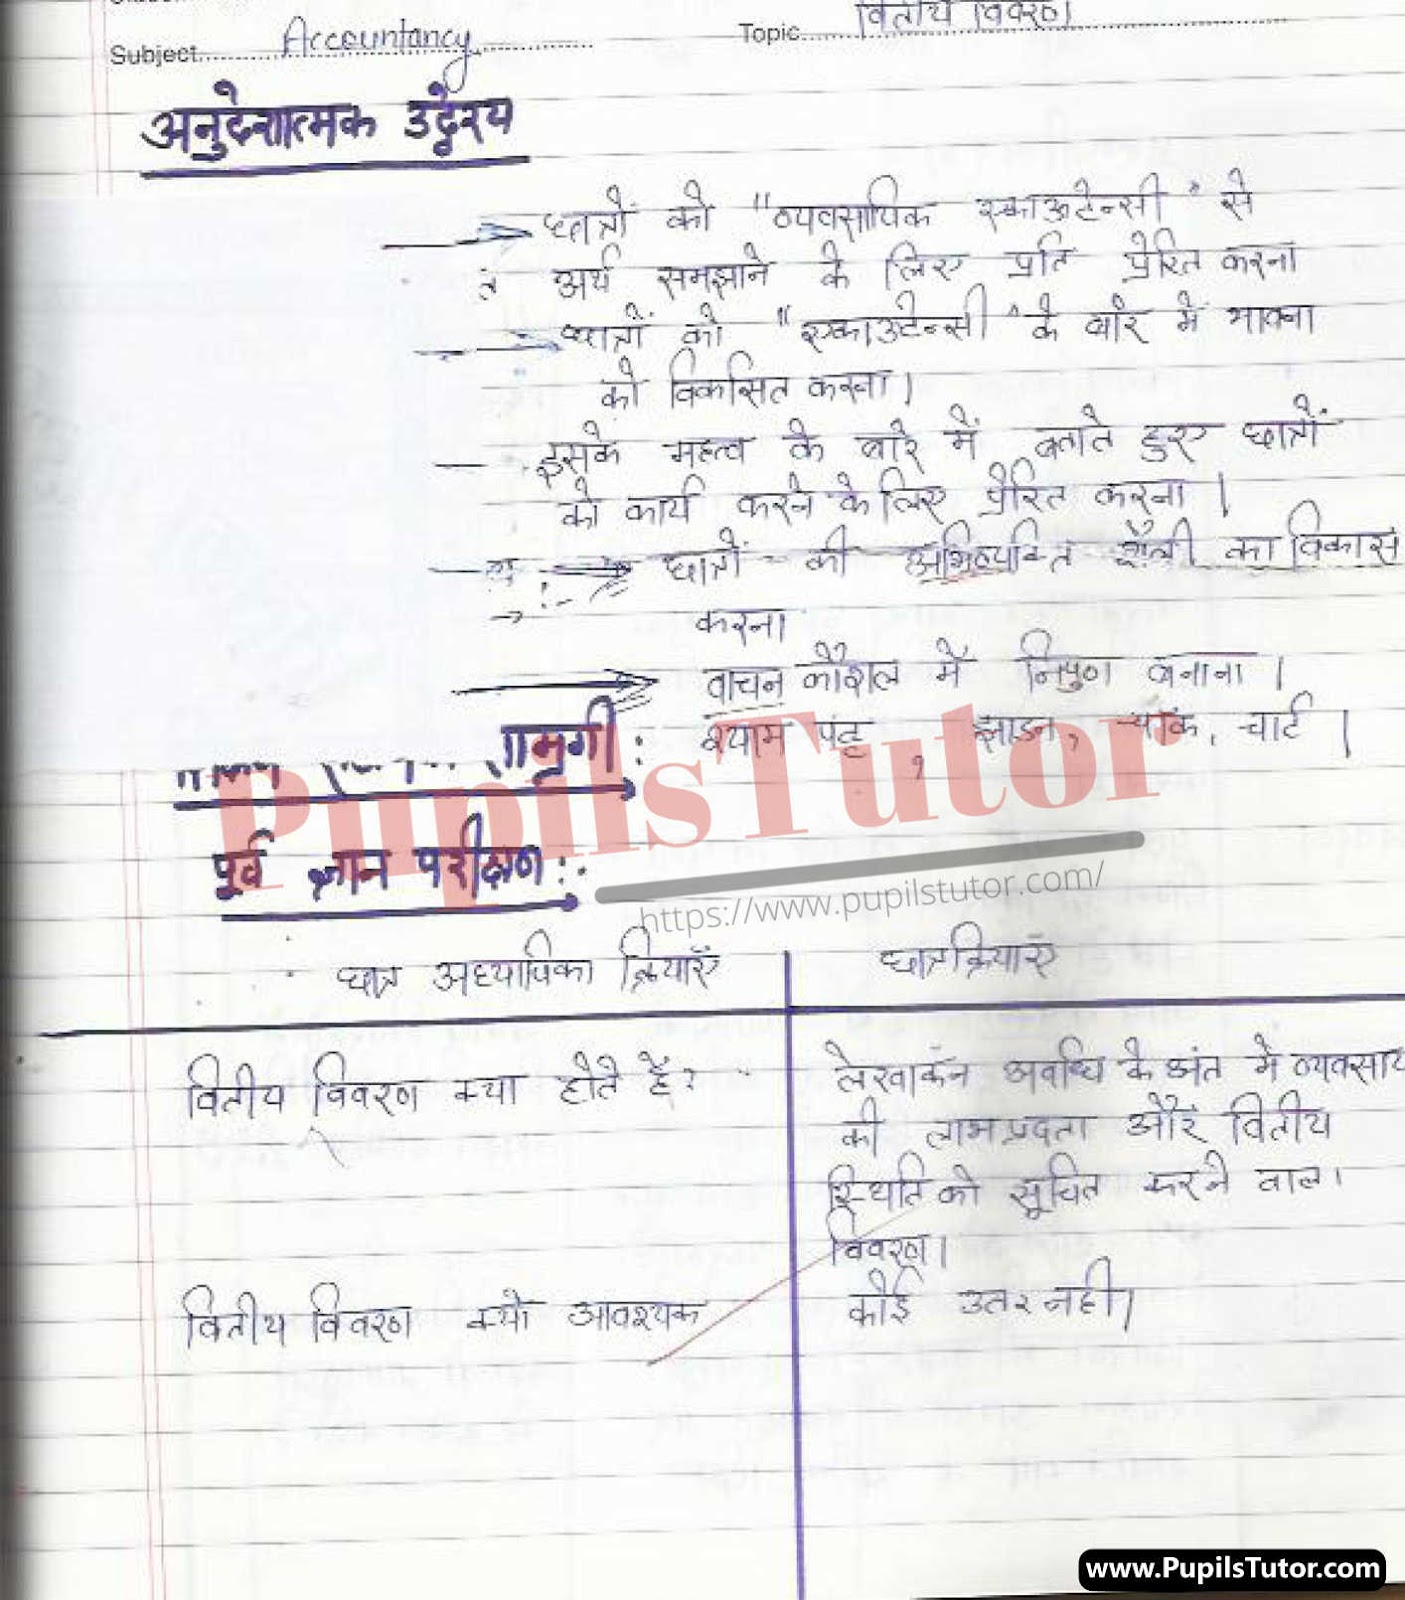 Subject Accountancy Topic वितीय विवरण
अनुदेशात्मक उद्देश्य
छात्रों को "व्यवसायिक एकाऊटेन्सी" से
अर्थ समझाने के लिए प्रति प्रेरित करना
छात्रों को "एकाउटेन्सी" के बारे में भावना
को विकसित करना।
इसके महत्व के बारे में बताते हुए छात्रों
को कार्य करने के लिए प्रेरित करना।
छात्रों की अभिव्यक्ति शैली का विकास
करना।
वाचन कौशल में निपुण बनाना।
श्याम पट्ट, झाडन, चॉक, चार्ट।
PupilsTutor
पूर्व ज्ञान परीक्षण:
https://www.pupilstutor.com/
छात्र अध्यापिका क्रियाएँ छात्र क्रियाएँ
वितीय विवरण क्या होते है? लेखाकंन अवधि के अंत में व्यवसाय
की लाभप्रदता और वितीय
स्थिति को सूचित करने वाल।
विवरण।
वितीय विवरण क्यों आवश्यक कोई उतर नही।
www.PupilsTutor.com